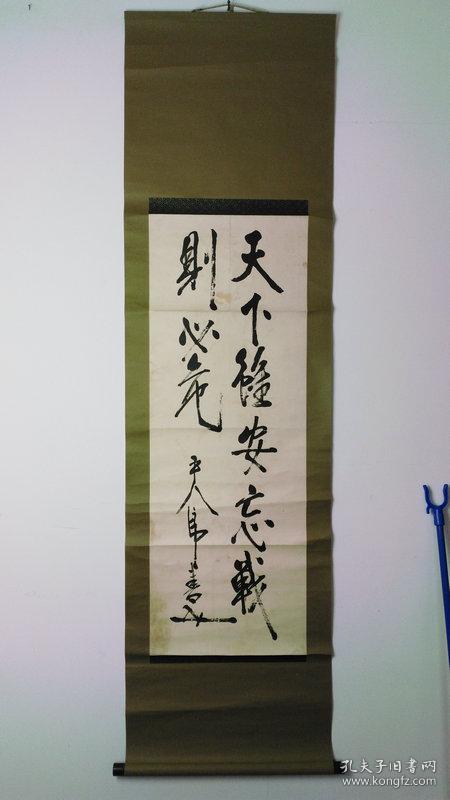 天下雖安忘戦
則必危
書
孔夫子旧书网
www.kongfz.com